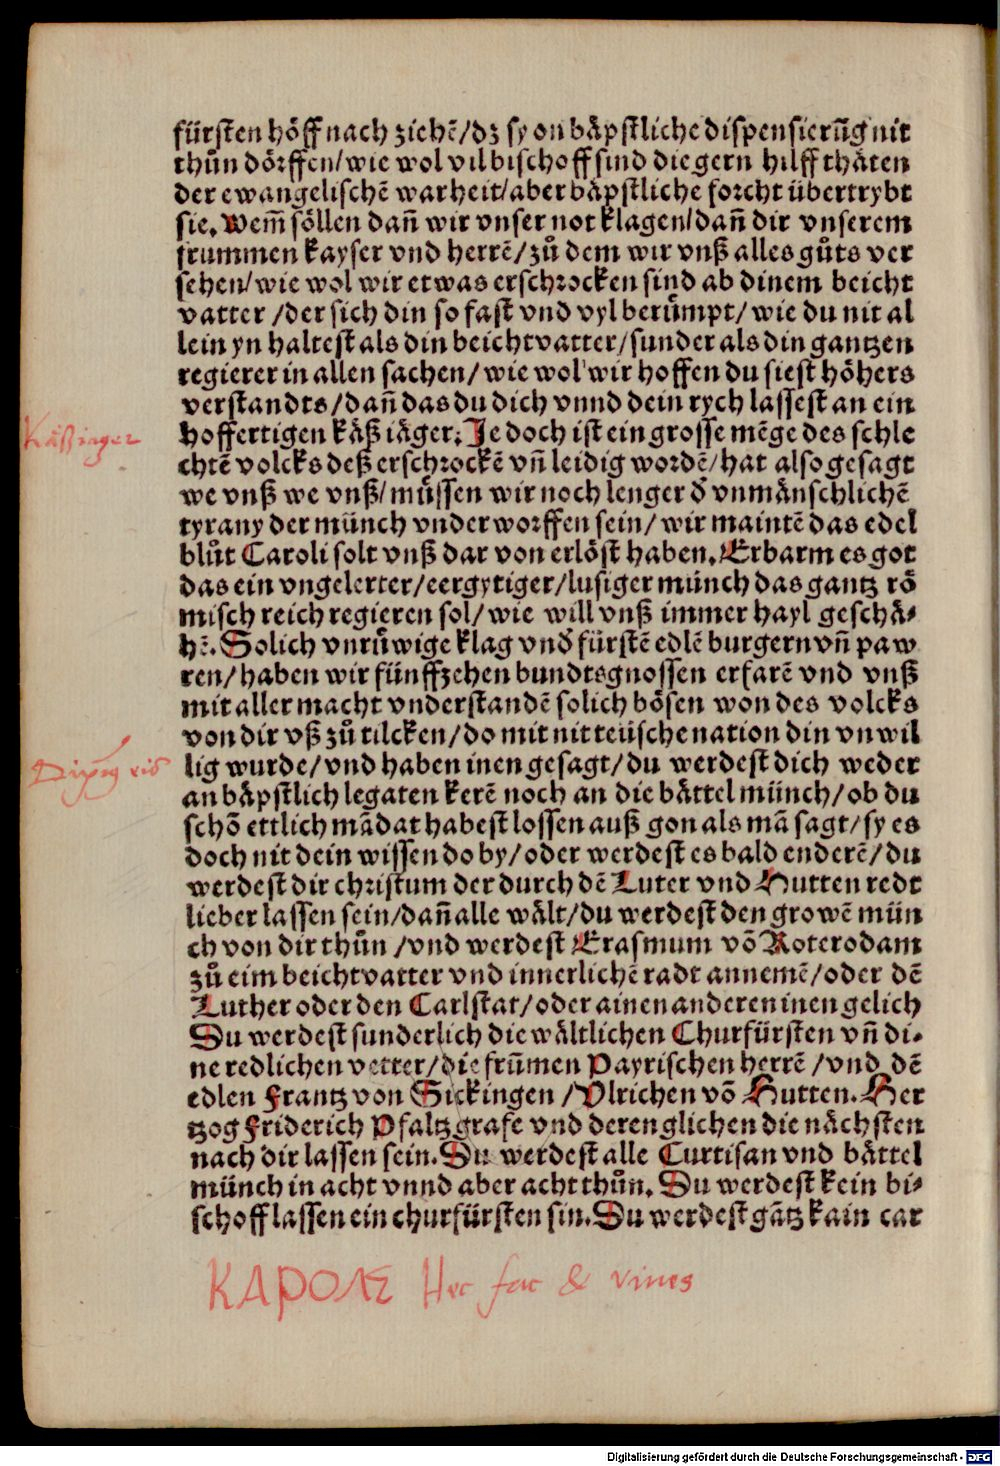 fürsten höff nach ziehē/dz sy on bäpstliche dispensierūg nit
thůn dörffen/wie wol vil bischoff sind die gern hilff thäten
der ewangelischē warheit/aber bäpstliche forcht übertrybt
sie. Wem̄ söllen dañ wir vnser not klagen/dañ dir vnserem
frummen kayser vnd herrē/zů dem wir vnß alles gůts ver
sehen/wie wol wir etwas erschrocken sind ab dinem beicht
vatter/der sich din so fast vnd vyl berümpt/wie du nit al
lein yn haltest als din beichtvatter/sunder als din gantzen
regierer in allen sachen/wie wol wir hoffen du siest höhers
verstandts/dañ das du dich vnnd dein rych lassest an ein
Käßjäger
hoffertigen käß iäger: Je doch ist ein grosse mēge des schle
chtē volcks deß erschrockē vñ leidig wordē/hat also gesagt
we vnß we vnß/müssen wir noch lenger d' vnmänschlichē
tyrany der münch vnder worffen sein/wir maintē das edel
blůt Caroli solt vnß dar von erlöst haben. Erbarm es got
das ein vngelerter/eergytiger/lusiger münch das gantz rö
misch reich regieren sol/wie will vnß immer hayl geschä-
hē. Solich vnrůwige klag vnd' fürstē edlē burgern vñ paw
ren/haben wir fünffzehen bundtsgnossen erfarē vnd vnß
mit aller macht vnderstandē solich bösen won des volcks
von dir vß zů tilcken/do mit nit teüsche nation din vnwil
lig wurde/vnd haben inen gesagt/du werdest dich weder
an bäpstlich legaten kerē noch an die bättel münch/ob du
schō ettlich mādat habest lossen auß gon als mā sagt/sy es
doch nit dein wissen do by/oder werdest es bald enderē/du
werdest dir christum der durch dē Luter vnd Hutten redt
lieber lassen sein/dañ alle wält/du werdest den growē mün
ch von dir thůn/vnd werdest Erasmum vō Roterodam
zů eim beichtvatter vnd innerlichē radt annemē/oder dē
Luther oder den Carlstat/oder ainen anderen inen gelich
Du werdest sunderlich die wältlichen Churfürsten vñ di-
ne redlichen vetter/die frūmen Payrischen herrē/vnd dē
edlen Frantz von Sickingen/Vlrichen vō Hutten. Her
tzog Friderich Pfaltzgrafe vnd derenglichen die nächsten
nach dir lassen sein. Du werdest alle Curtisan vnd bättel
münch in acht vnnd aber acht thůn. Du werdest kein bi-
schoff lassen ein churfürsten sin. Du werdest gātz kain car
Hec fac & vives
Digitalisierung gefördert durch die Deutsche Forschungsgemeinschaft - DFG